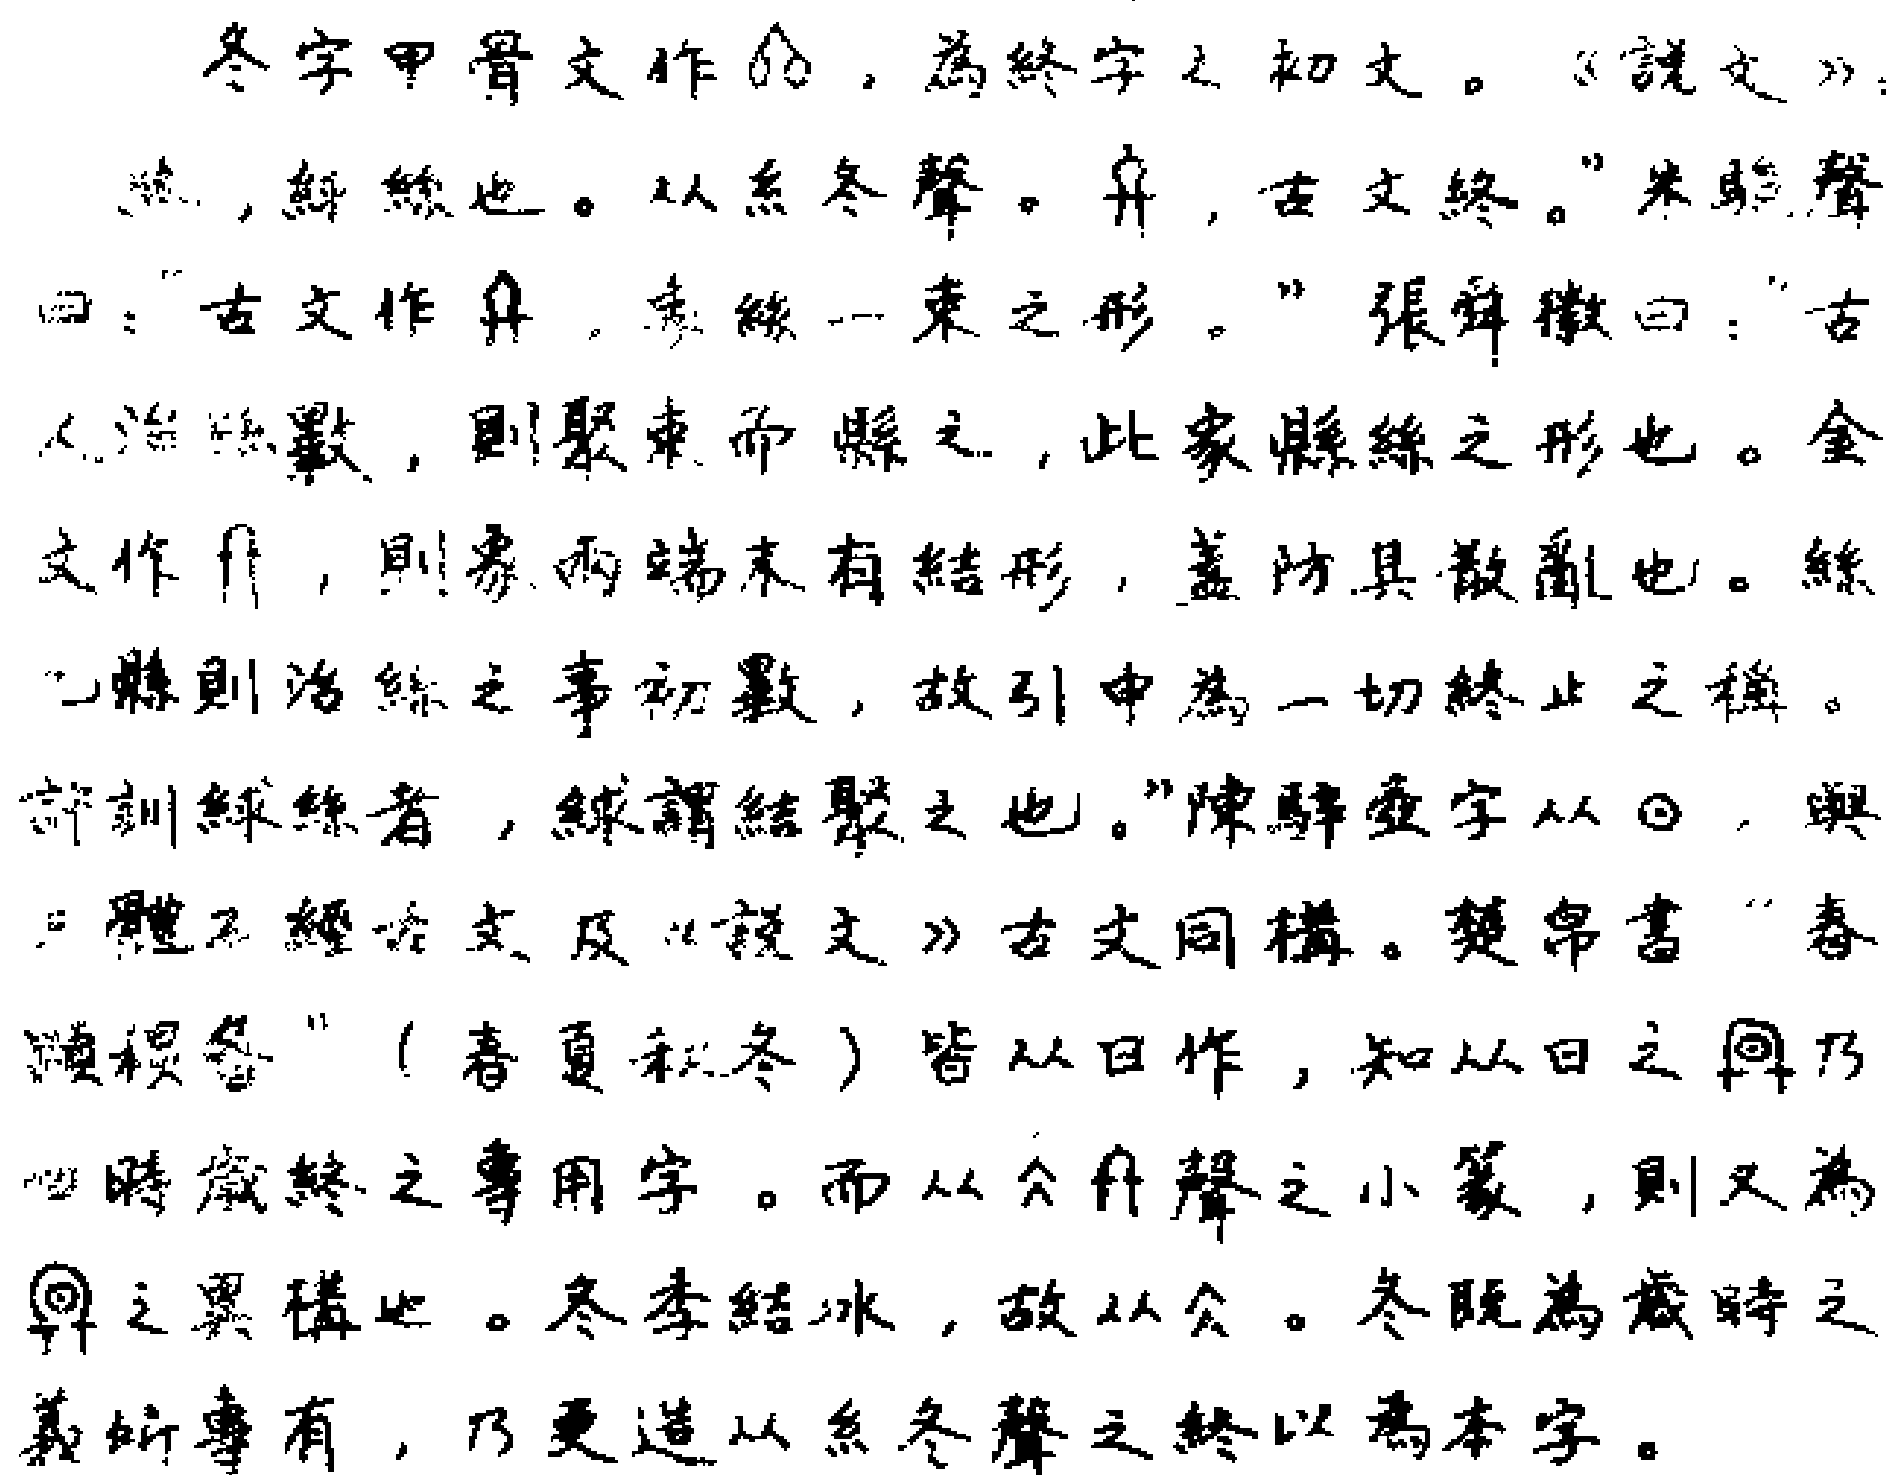 冬字甲骨文作,為終字之初文。《說文》:
,絿絲也。从糸冬聲。,古文終。”朱駿聲
曰:“古文作,象絲一束之形。”張舜徽曰:“古
人治絲數,則聚束而縣之,此象縣絲之形也。金
文作,則象兩端末有結形,蓋防其散亂也。絲
已縣則治絲之事初數,故引申為一切終止之稱。
許訓絿絲者,絿謂結聚之也。”陳騂壺字从⊙,與
體石經古文及《說文》古文同構。楚帛書“春
”(春夏秋冬)皆从日作,知从日之乃
四時歲終之專用字。而从仌聲之小篆,則又為
之異構也。冬季結冰,故从仌。冬既為歲時之
義所專有,乃更造从糸冬聲之終以為本字。